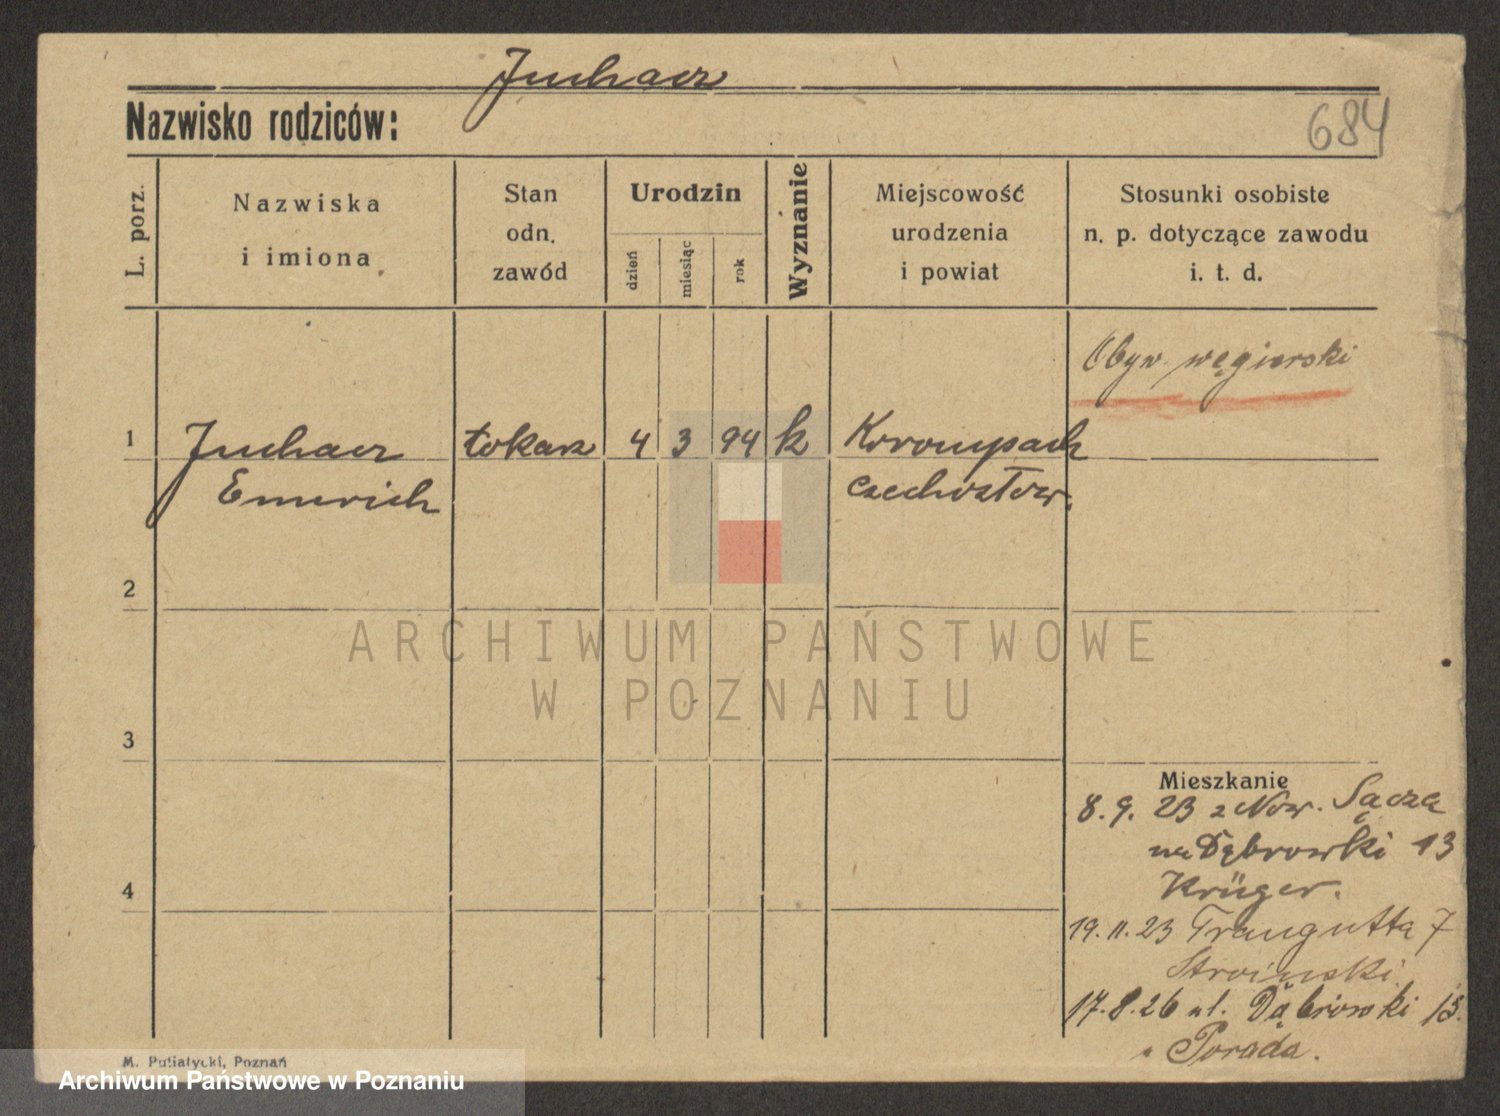 Juhacz
Nazwisko rodziców:
684
L. porz.
Nazwiska
i imiona
Stan
odn.
zawód
Urodzin
dzień
miesiąc
rok
Wyznanie
Miejscowość
urodzenia
i powiat
Stosunki osobiste
n. p. dotyczące zawodu
i. t. d.
Obyw. węgierski
1
Juhacz
Emerich
tokarz
4
3
94
k
Krompach
Czechosłow.
2
3
4
Mieszkanie
8. 9. 23 z Now. Sącza
na Dąbrowski 13
Krüger.
19. 11. 23 Traugutta 7
Stroiński
17. 8. 26 ul. Dąbrowski 15.
Porada.
M. Putiatycki, Poznań
ARCHIWUM PAŃSTWOWE
W POZNANIU
Archiwum Państwowe w Poznaniu